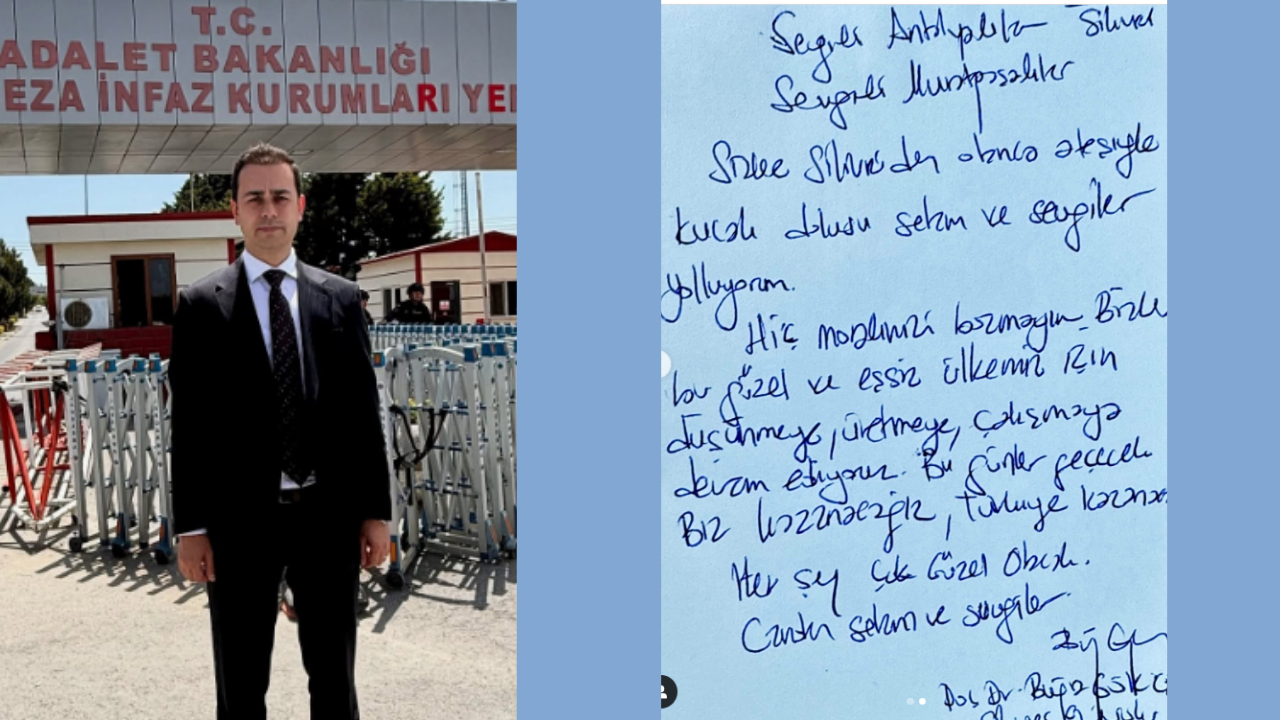 T.C.
ADALET BAKANLIĞI
EZA İNFAZ KURUMLARI YE
Sevgili Antalyalılar Silivri
Sevgili Muratpaşalılar
Sizlere Silivri'den olanca ateşiyle
kucak dolusu selam ve sevgiler
yolluyorum.
Hiç moralinizi bozmayın. Bizler
bu güzel ve eşsiz ülkemiz için
düşünmeye, üretmeye, çalışmaya
devam ediyoruz. Bu günler geçecek
Biz kazanacağız, Türkiye kazanac
Her şey çok güzel olacak.
Candan selam ve sevgiler.
Doç. Dr. Buğra GÖKC